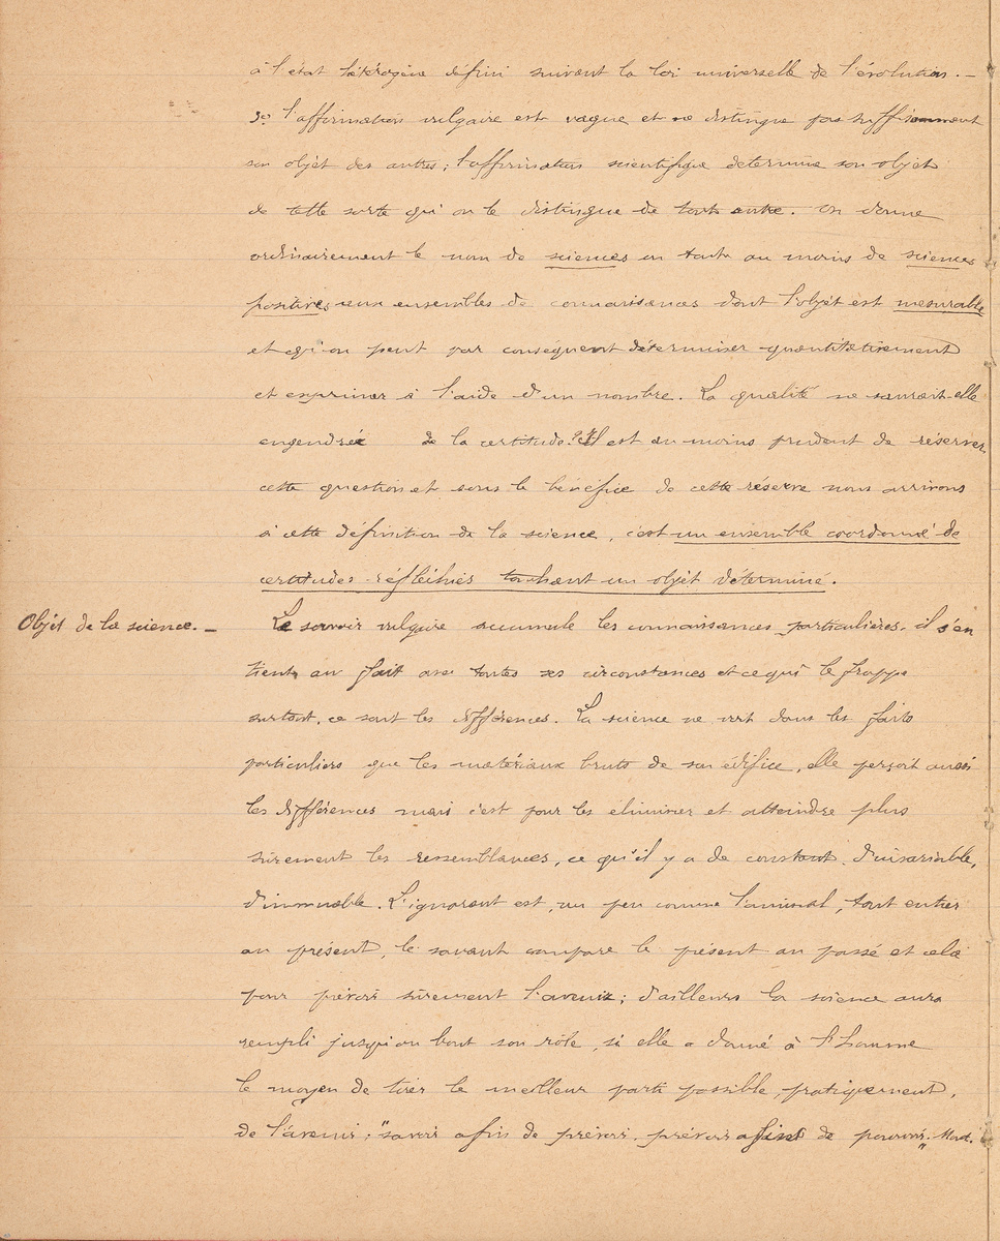 à l'état hétérogène défini suivant la loi universelle de l'évolution. —
3º l'affirmation vulgaire est vague et ne distingue pas suffisamment
son objet des autres ; l'affirmation scientifique détermine son objet
de telle sorte qu'on le distingue de tout autre. On donne
ordinairement le nom de sciences ou tout au moins de sciences
positives aux ensembles de connaissances dont l'objet est mesurable
et qu'on peut par conséquent déterminer quantitativement
et exprimer à l'aide d'un nombre. La qualité ne saurait-elle
engendrer de la certitude ? Il est au moins prudent de réserver
cette question et sous le bénéfice de cette réserve nous arrivons
à cette définition de la science, c'est un ensemble coordonné de
certitudes réfléchies touchant un objet déterminé.
Objet de la science. — Le savoir vulgaire accumule les connaissances particulières. il s'en
tient au fait avec toutes ses circonstances et ce qui le frappe
surtout, ce sont les différences. La science ne voit dans les faits
particuliers que les matériaux bruts de son édifice, elle perçoit aussi
les différences mais c'est pour les éliminer et atteindre plus
sûrement les ressemblances, ce qu'il y a de constant, d'invariable,
d'immuable. L'ignorant est, un peu comme l'animal, tout entier
au présent, le savant compare le présent au passé et cela
pour prévoir sûrement l'avenir ; d'ailleurs la science aura
rempli jusqu'au bout son rôle, si elle a donné à l'homme
le moyen de tirer le meilleur parti possible, pratiquement,
de l'avenir ; "savoir afin de prévoir. prévoir afin de pouvoir"